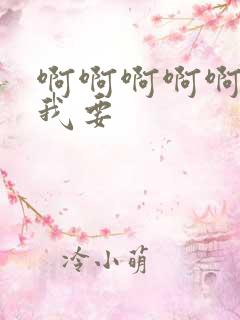 啊啊啊啊啊
我要
冷小萌